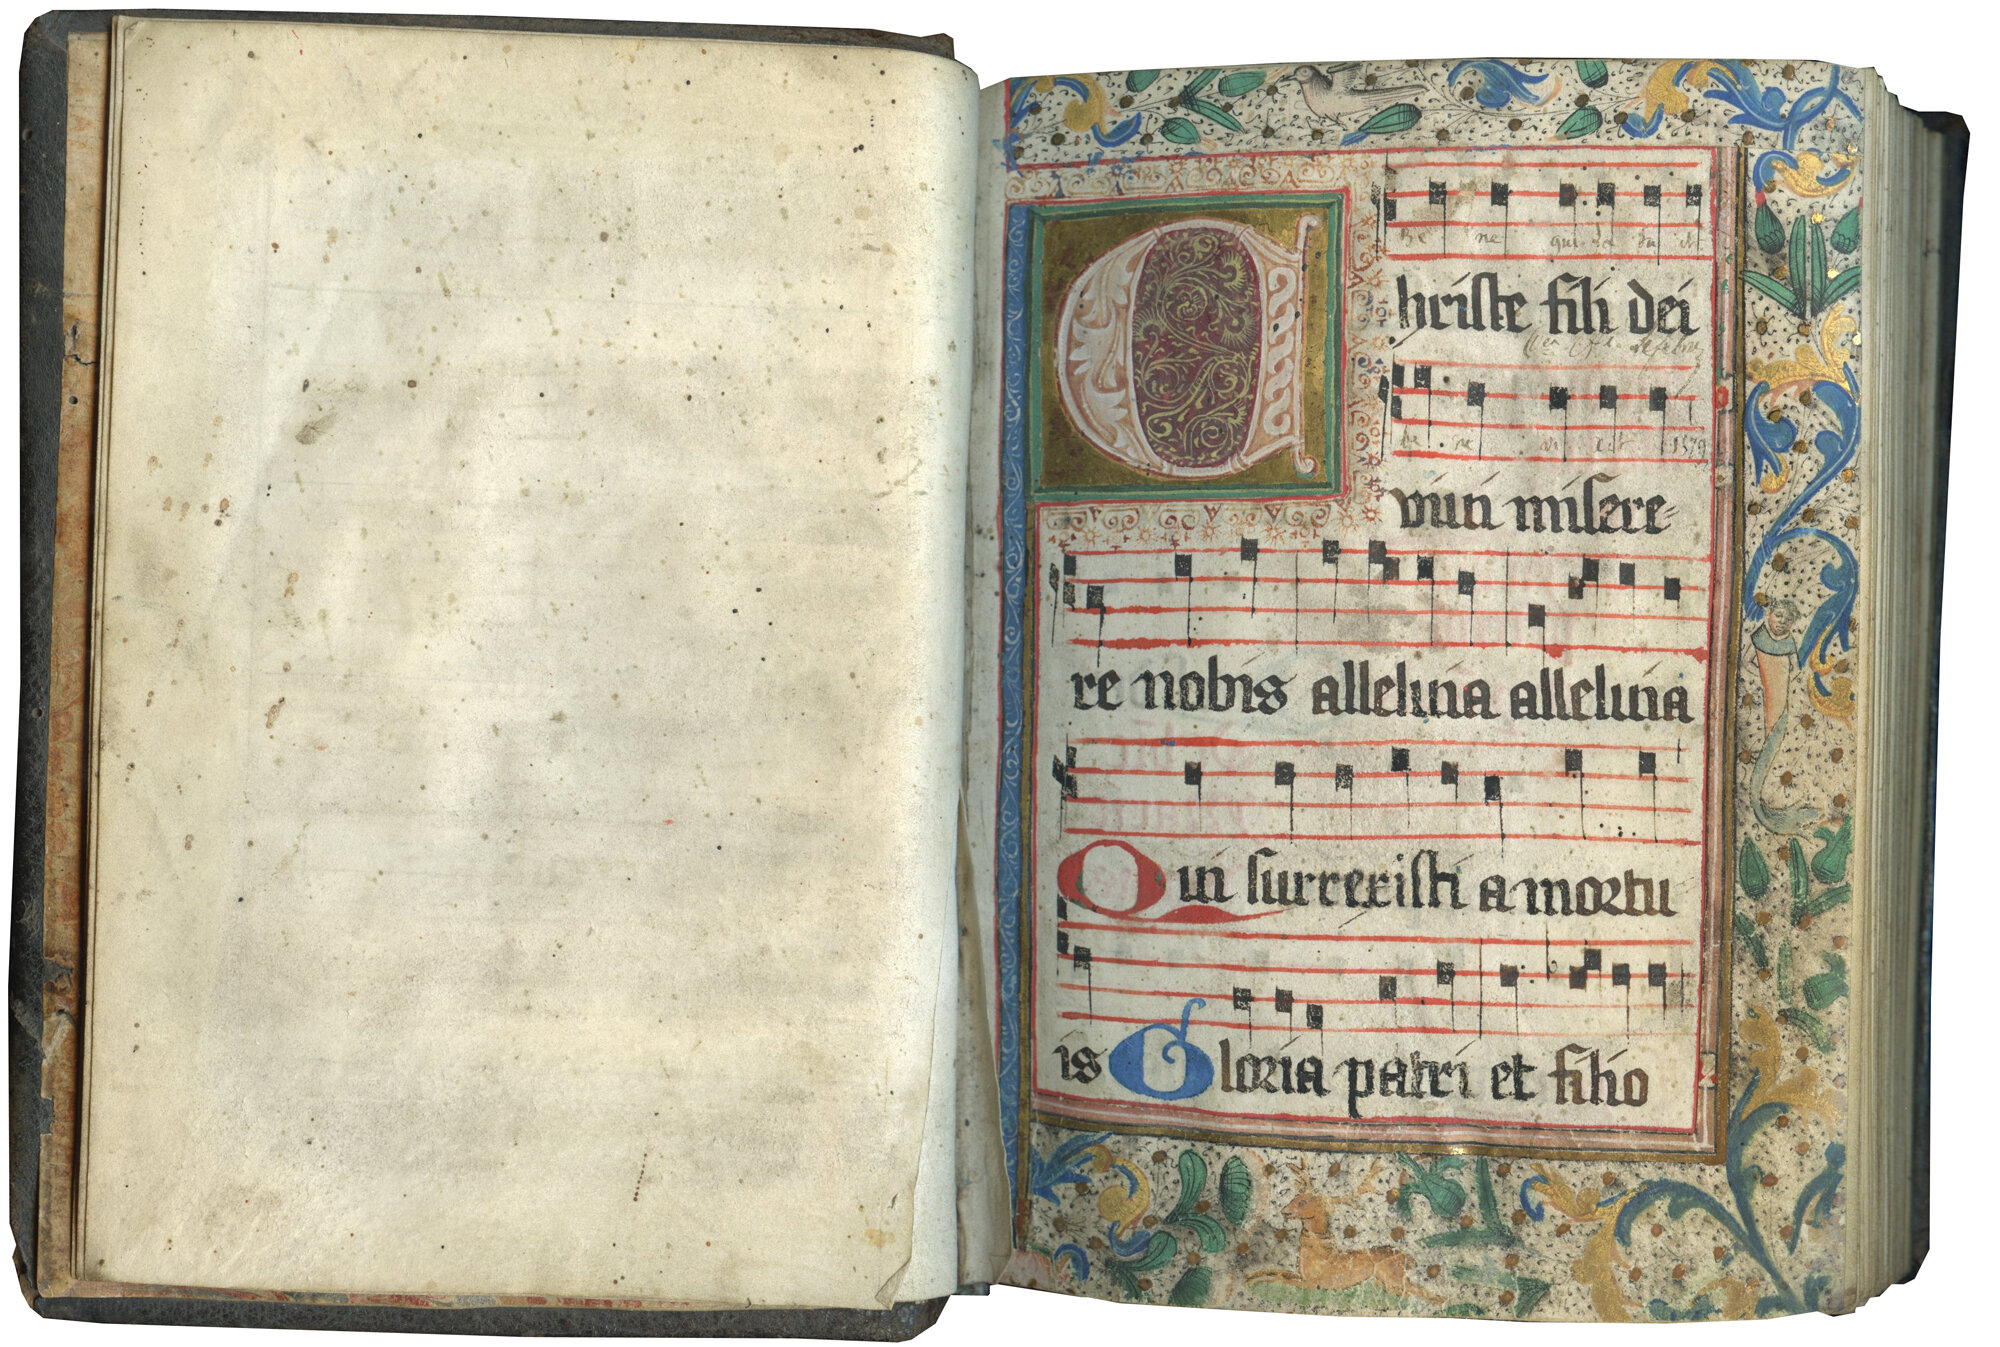 Christe fili dei
vivi misere-
re nobis alleluia alleluia
Qui surrexisti a mortu
is Gloria patri et filio